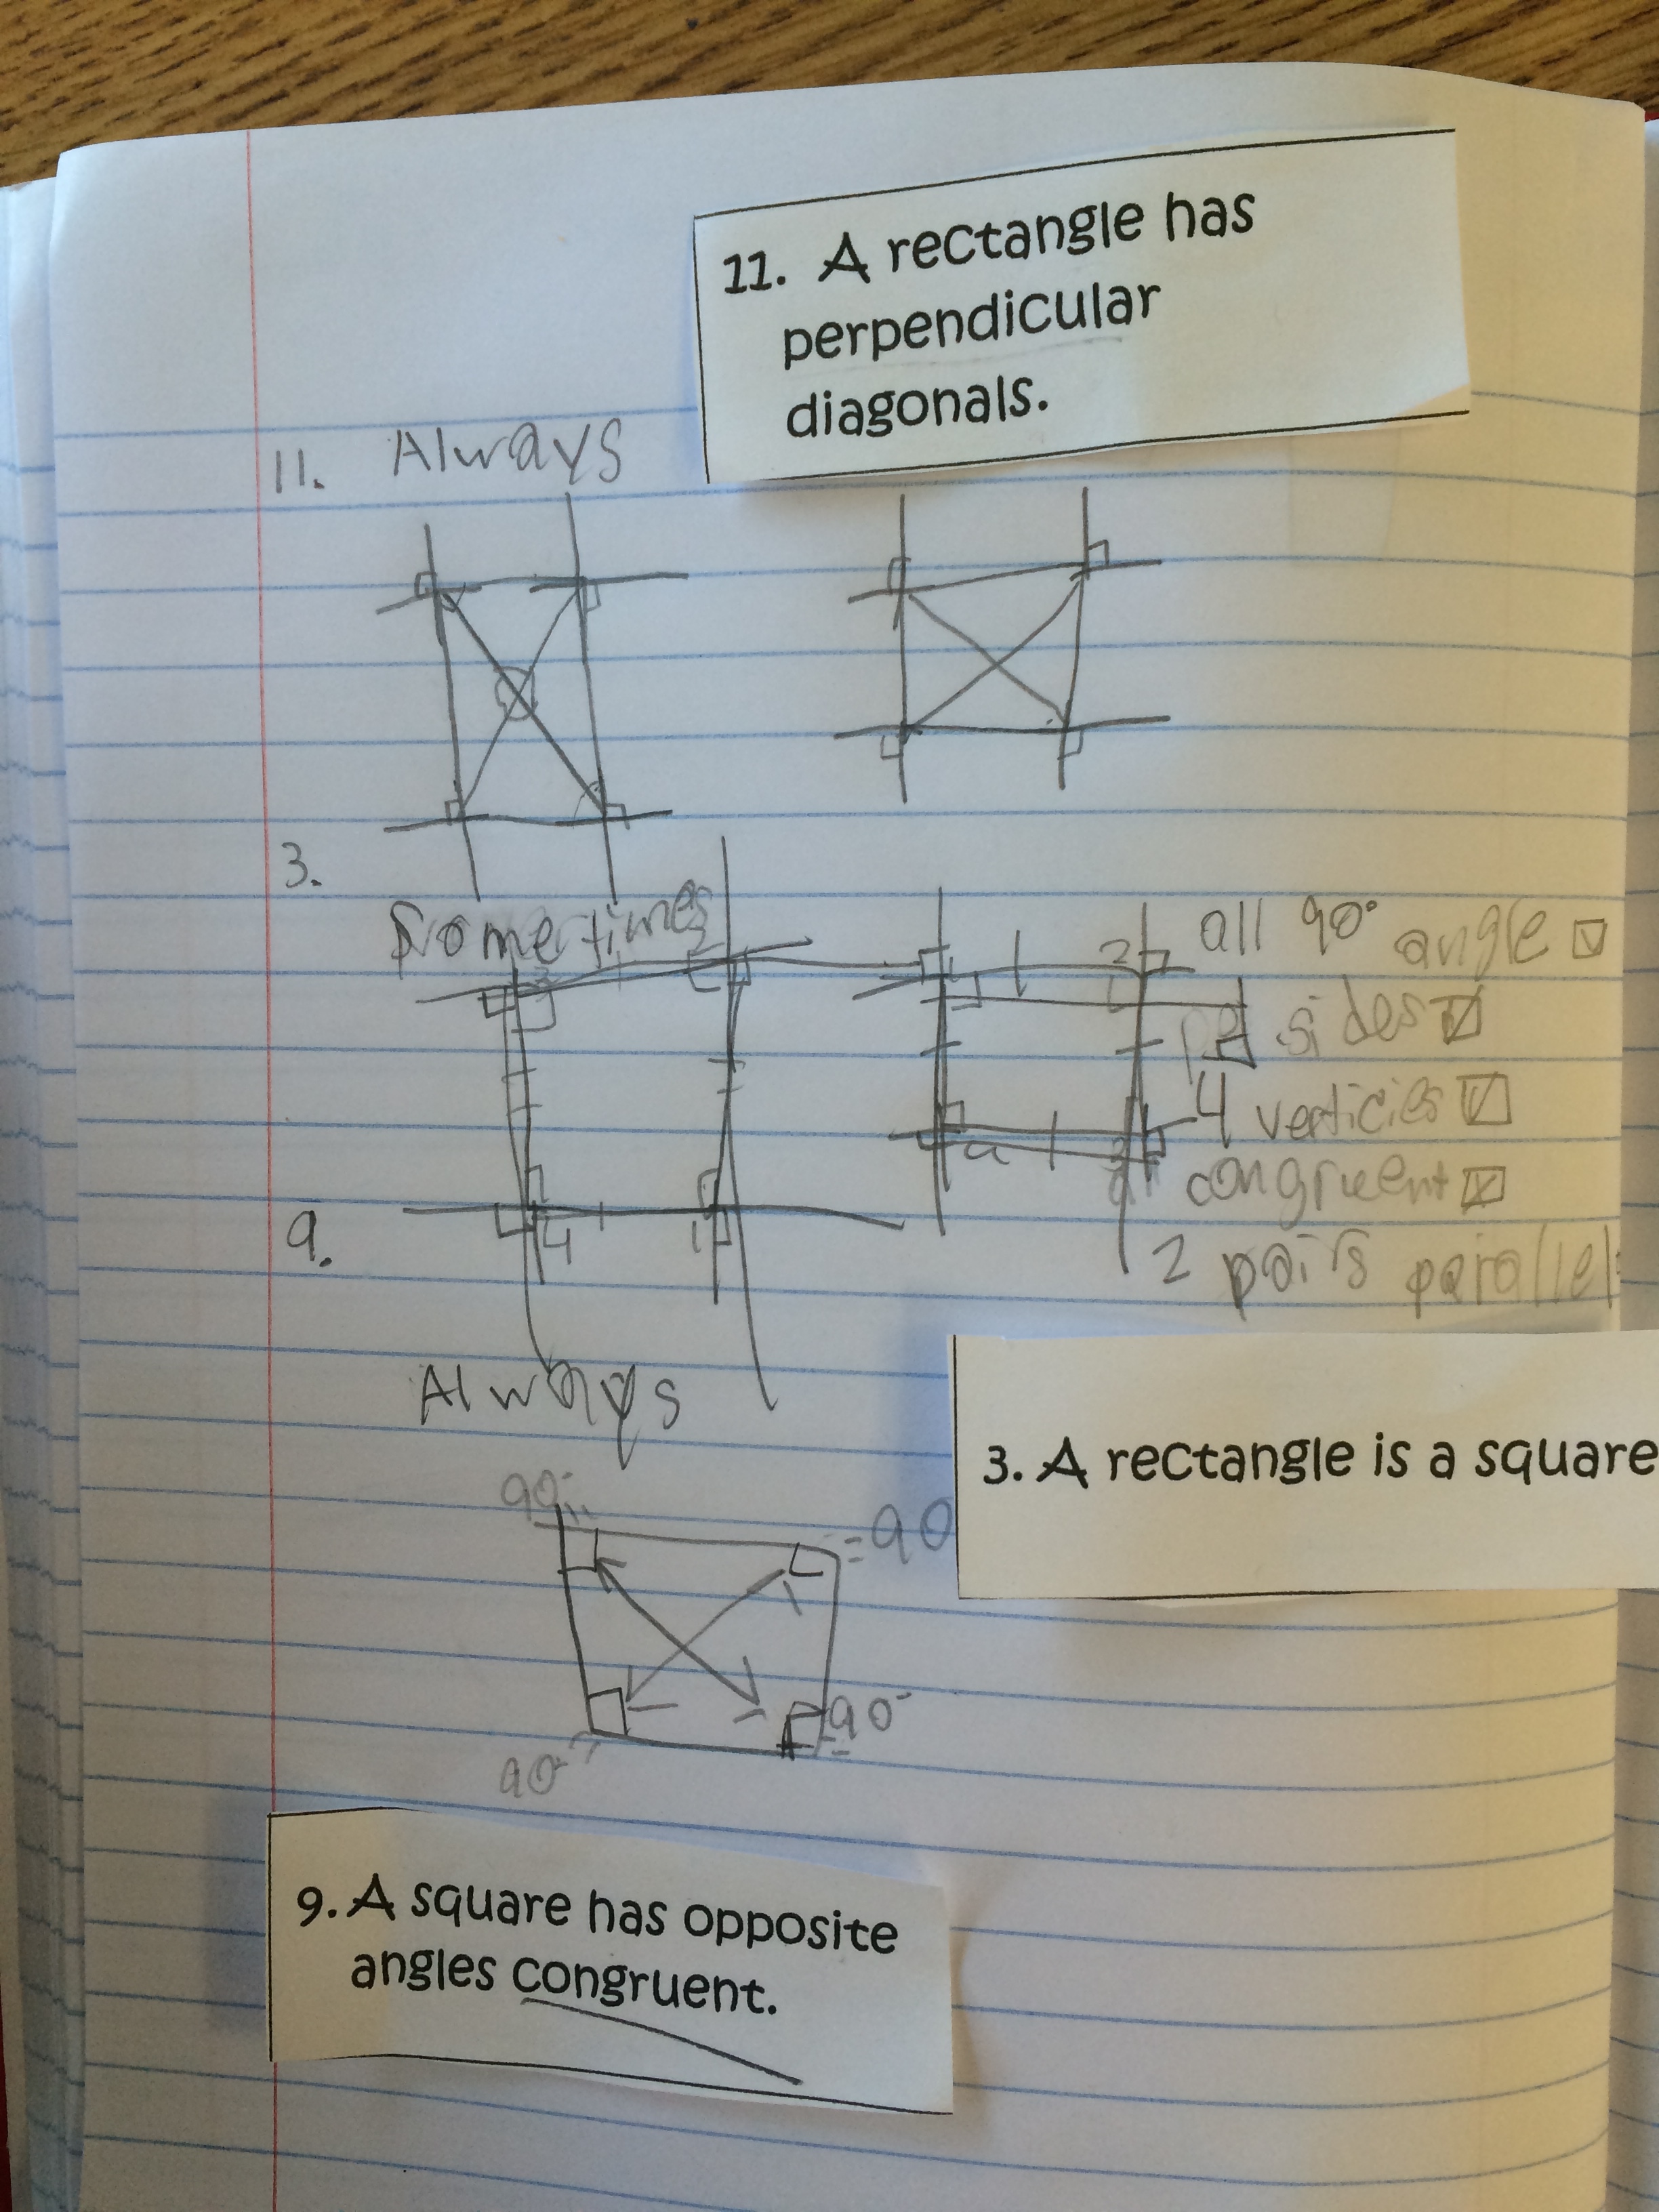 11. A rectangle has
perpendicular
diagonals.
11. Always
3.
Sometimes
all 90° angle
sides
4 verticies
congruent
2 pairs parallel
9.
Always
3. A rectangle is a square
90
=90
90
90
9. A square has opposite
angles congruent.